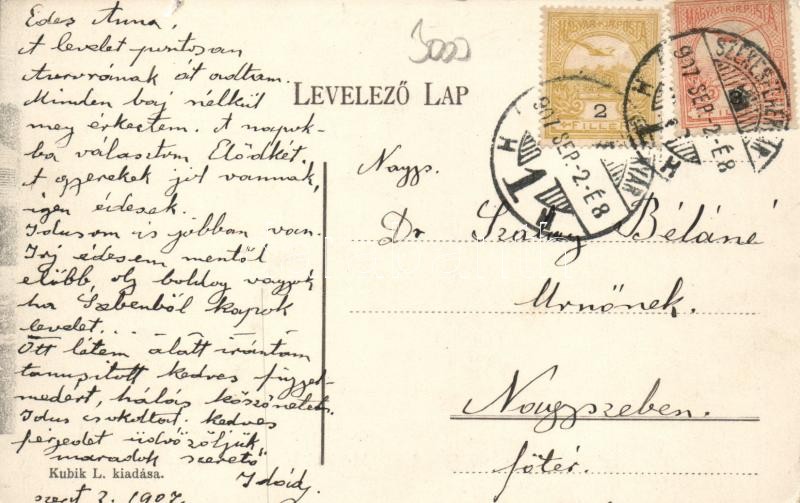 Édes Anna!
A levelet pontosan
Aurorának át adtam.
Minden baj nélkül
meg érkeztem. A napok-
ba választom Elődkét.
A gyerekek jól vannak,
igen édesek.
Idusom is jobban van.
Irj édesem mentől
előbb, oly boldog vagyok
ha Szebenből kapok
levelet...
Ott létem alatt irántam
tanusitott kedves figyel-
medért, hálás köszönetem.
Idus csokoltat. kedves
férjedet üdvözöljük
maradok szerető
Kubik L. kiadása.
szept 2. 1907.
3000
LEVELEZŐ LAP
MAGYAR KIR. POSTA
2
FILLÉR
MAGYAR KIR. POSTA
907 SEP. -2. É 8
907 SEP. -2. É 8
Nagys.
Dr Szalay Béláné
Urnőnek.
Nagyszeben.
főtér.